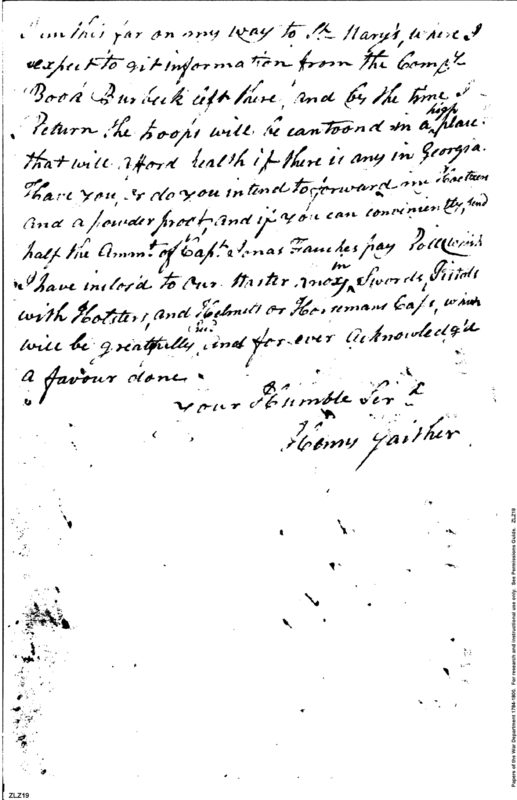 I am this far on my way to St. Mary's, where I
expect to git information from the Compy
Book Burbeck left there, and by the time I
Return the troops will be cantoond in a high place
that will afford health if there is any in Georgia.
Have you, or do you intend to forward me
and a powder proof, and if you can conviniently, send
half the Ammt. of Capt. Jonas Fauches pay Roll which
I have inclos'd to our Master Knox, in Swords, Pistols
with Holsters, and Helmets or Horsemans Caps, which
will be greatfully and for ever Acknowledg'd
a favour done
your Humble Servt
Henry Gaither
Papers of the War Department 1784-1800. For research and instructional use only. See Permissions Guide. ZLZ19
ZLZ19